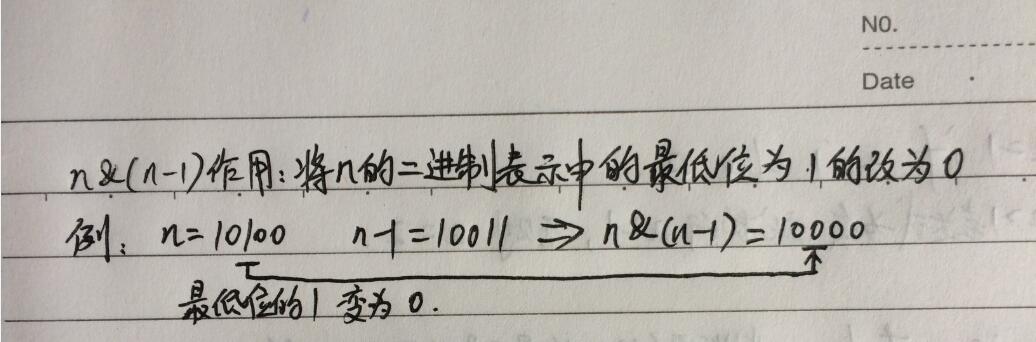 NO.
Date
n&(n-1)作用：将n的二进制表示中的最低位为1的改为0
例：n=10100 n-1=10011 ⇒ n&(n-1)=10000
最低位的1变为0.